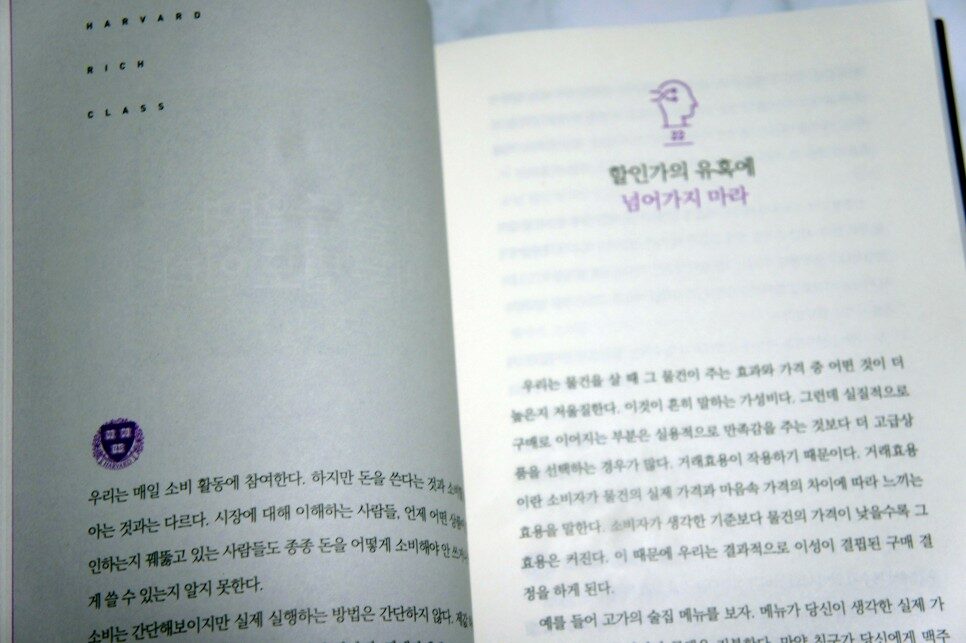 HARVARD
RICH
CLASS
HARVARD
우리는 매일 소비 활동에 참여한다. 하지만 돈을 쓴다는 것과
아는 것과는 다르다. 시장에 대해 이해하는 사람들, 언제 어떤
인하는지 꿰뚫고 있는 사람들도 종종 돈을 어떻게 소비해야 안
게 쓸 수 있는지 알지 못한다.
소비는 간단해보이지만 실제 실행하는 방법은 간단하지 않다.
22
할인가의 유혹에
넘어가지 마라
우리는 물건을 살 때 그 물건이 주는 효과와 가격 중 어떤 것이 더
높은지 저울질한다. 이것이 흔히 말하는 가성비다. 그런데 실질적으로
구매로 이어지는 부분은 실용적으로 만족감을 주는 것보다 더 고급상
품을 선택하는 경우가 많다. 거래효용이 작용하기 때문이다. 거래효용
이란 소비자가 물건의 실제 가격과 마음속 가격의 차이에 따라 느끼는
효용을 말한다. 소비자가 생각한 기준보다 물건의 가격이 낮을수록 그
효용은 커진다. 이 때문에 우리는 결과적으로 이성이 결핍된 구매 결
정을 하게 된다.
예를 들어 고가의 술집 메뉴를 보자. 메뉴가 당신이 생각한 실제 가
만약 친구가 당신에게 맥주